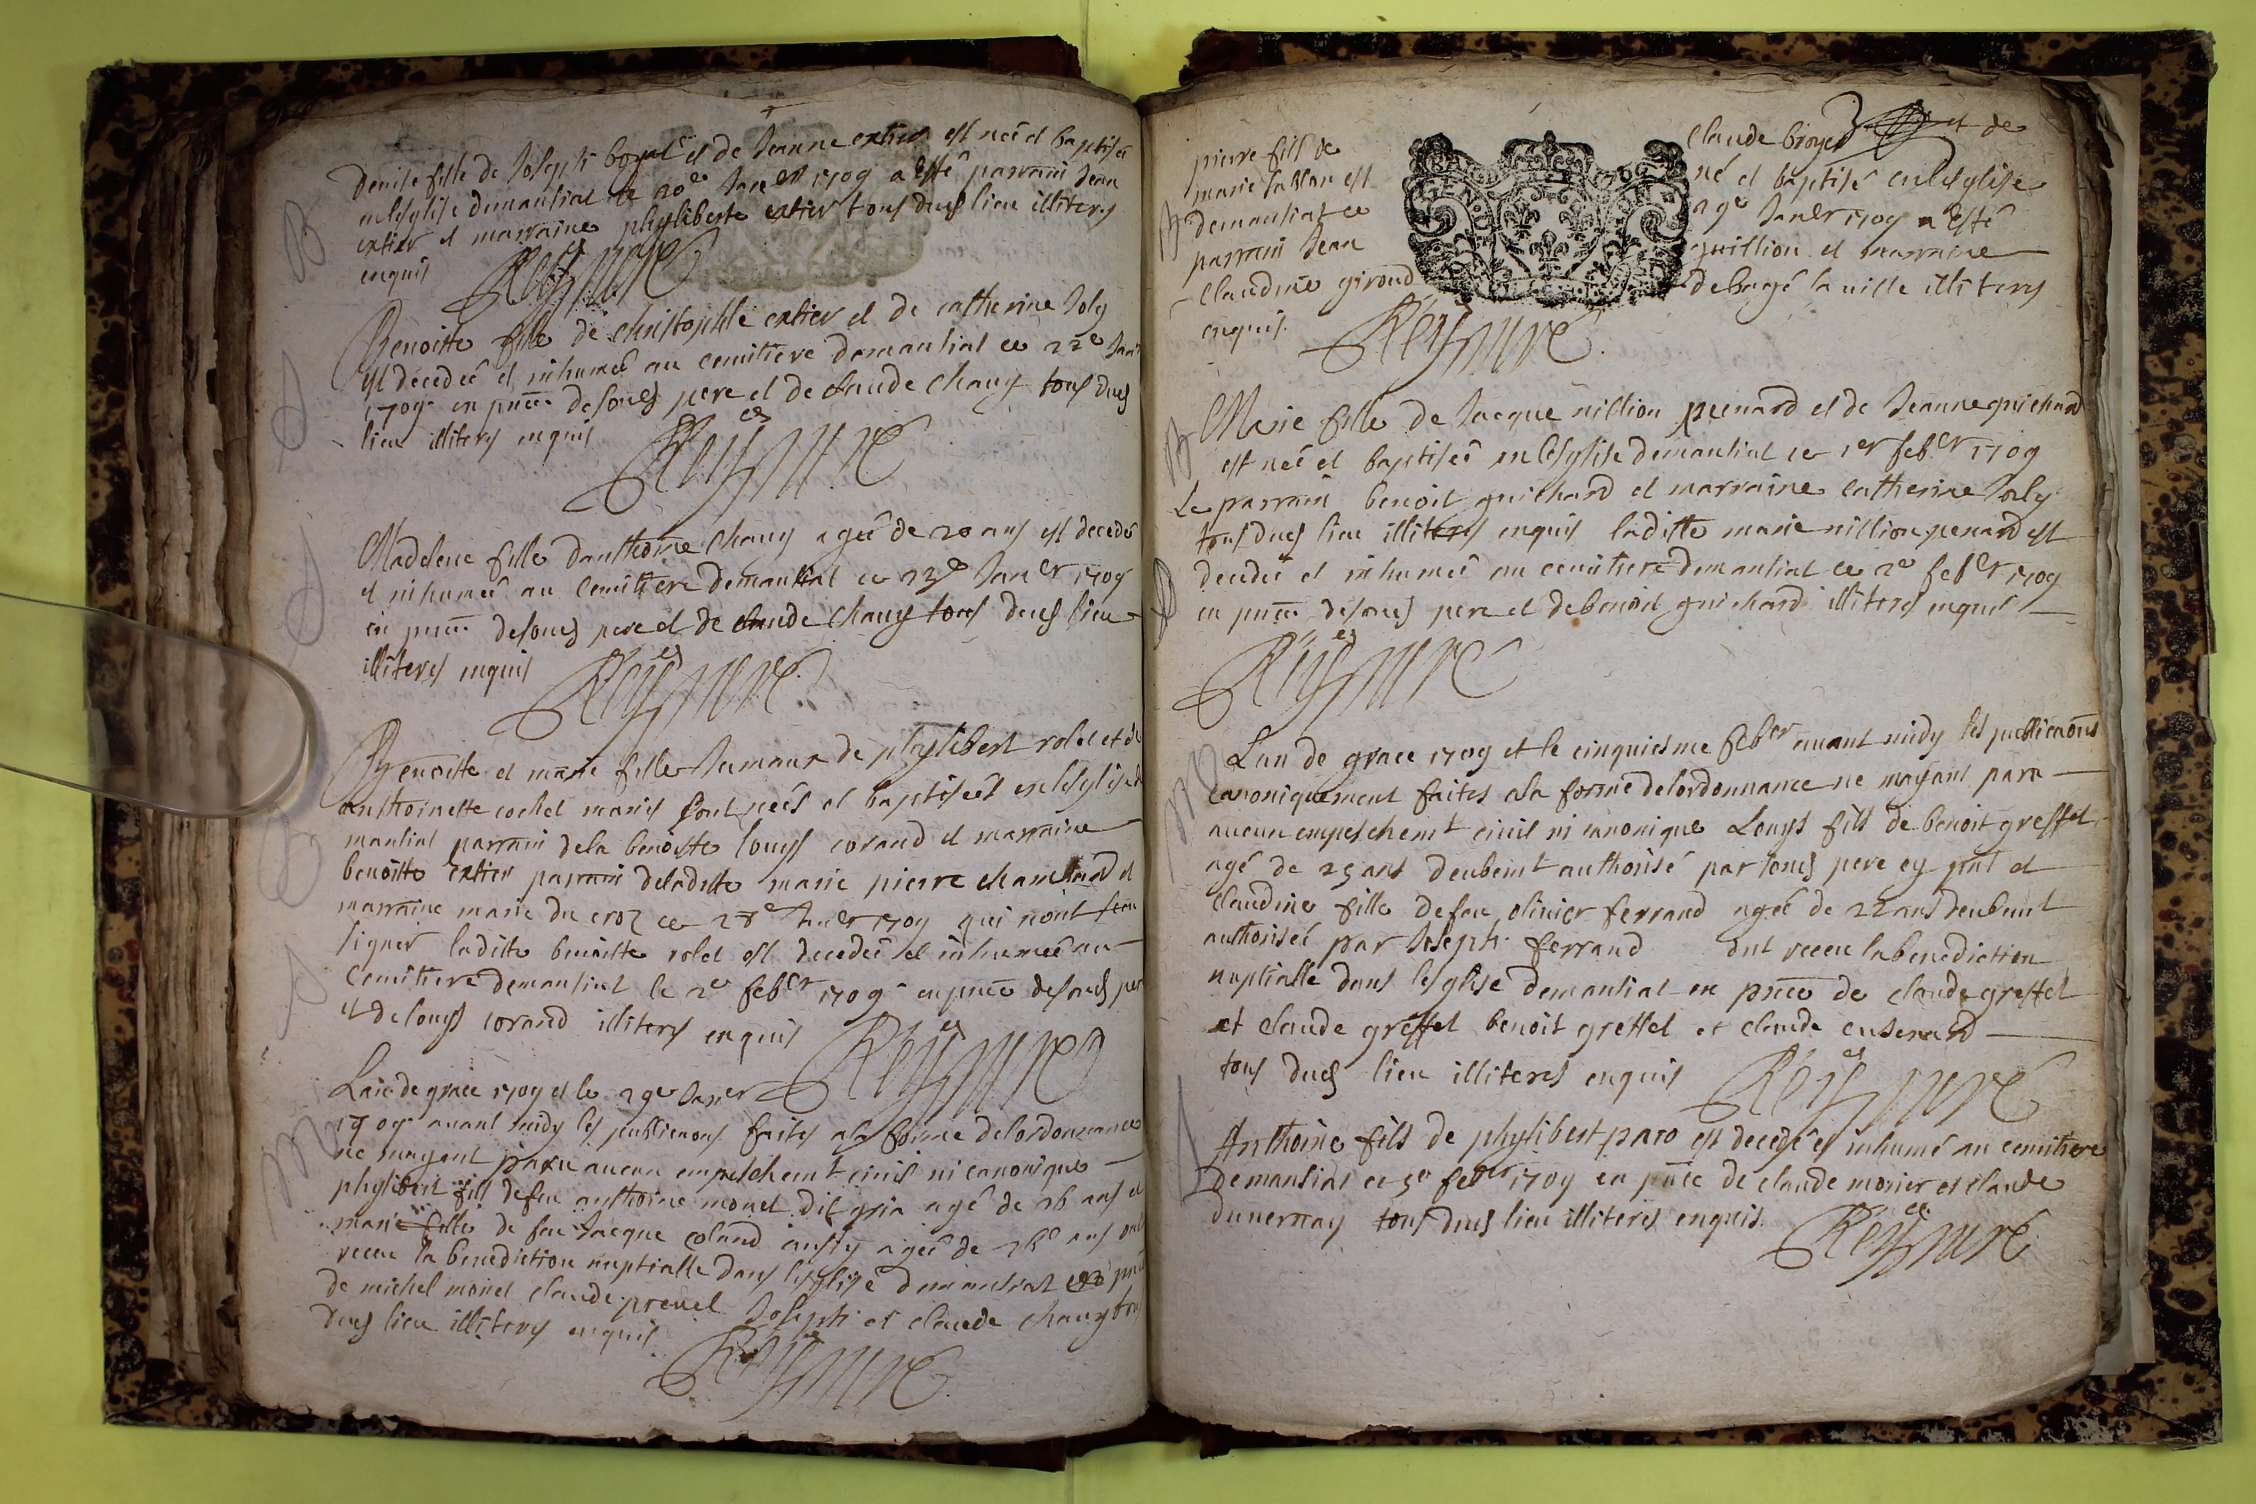 B
Denise fille de Joseph et de Jeanne extier est neé et baptiseé
en lesglise demantiat ce 20e Janer 1709 a esté parrain Jean
extier et marraine phyliberte extier tous dud lieu illiteres
enquis
Rey curé
S
Benoitte fille de christophle extier et de catherine Joly
est decedeé et inhumeé au cemitiere demantiat ce 22e Janer
1709 en pnce desond pere et de claude chauy tous dud
lieu illiteres enquis
Rey curé
S
Madelene fille danthoine chauy ageé de 20 ans est decedeé
et inhumeé au cemitiere demantiat ce 23e Janer 1709
en pnce desond pere et de claude chauy tous dud lieu
illiteres enquis
Rey curé
B
Benoitte et marie filles Jumaux de phylibert rolet et de
anthoinette cochet mariés sont neés et baptiseés en lesglise de
mantiat parrain dela benoitte louys corand et marraine
benoitte extier parrain deladitte marie pierre et
marraine marie du croz ce 28e Janer 1709 qui nont sceu
S
signer laditte benoitte rolet est decedeé et inhumeé au
cemitiere demantiat le 2e feber 1709 en pnce desond pere
et de louys corand illiteres enquis
Rey curé
M
Lan de grace 1709 et le 29e Janer
1709 auant midy les publicaons faites ala forme delordonnance
ne mayant paru aucun empeschemt ciuil ni canonique
phylibert fils defeu anthoine monet dit agé de 26 ans et
marie fille de feu Jacque coland ageé de ans ont
receu la benediction nuptialle dans lesglise demantiat en pnce
de michel monet claude preuel Joseph et claude chauy tous
dud lieu illiteres enquis
Rey curé
B
pierre fils de claude broyer et de
marie est né et baptisé en lesglise
demantiat ce 29e Janer 1709 a esté
parrain Jean guillion et marraine
claudine giroud debagé la uille illiteres
enquis.
Rey curé
B
Marie fille de Jacque nillion penard et de Jeanne guichard
est neé et baptiseé en lesglise demantiat ce 1er feber 1709
Le parrain benoit guichard et marraine catherine Joly
tous dud lieu illiteres enquis laditte marie nillion penard est
S
decedeé et inhumeé au cemitiere demantiat ce 2e feber 1709
en pnce desond pere et debenoit guichard illiteres enquis
Rey curé
M
Lan de grace 1709 et le cinquiesme feber auant midy les publicaons
canoniquement faites ala forme delordonnance ne mayant paru
aucun empeschemt ciuil ni canonique Louys fils de benoit greffet
agé de 25 ans deubemt authorisé par sond pere cy pnt et
claudine fille defeu oliuier ferrand ageé de 22 ans deubemt
authoriseé par Joseph ferrand ont receu la benediction
nuptialle dans lesglise demantiat en pnce de claude greffet
et claude greffet benoit greffet et claude
tous dud lieu illiteres enquis
Rey curé
S
Anthoine fils de phylibert paro est decedé et inhumé au cemitiere
demantiat ce 5e feber 1709 en pnce de claude monier et claude
duuernay tous dud lieu illiteres enquis
Rey curé